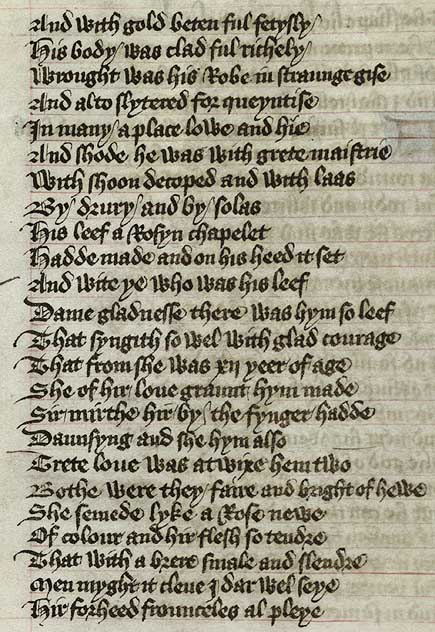 And with gold beten ful fetysly /
His body / was clad ful richely /
Wrought was his Robe in straunge gise
And al to slytered for queyntise
In many / a place lowe and hie
And shode he was with grete maistrie
With shoon decoped and with laas
By / drury / and by / solas
His leef a Rosyn chapelet
Hadde made and on his heed it set
And wite ye who was his leef
Dame gladnesse there was hym so leef
That syngith so wel with glad courage
That from she was xii yeer of age
She of hir love graunt hym made
Sir mirthe hir by / the fynger hadde
Daunsyng and she hym also
Grete love was atwixe hem two
Bothe were they / faire and bright of hewe
She semede lyke a Rose newe
Of colour and hir flesh so tendre
That with a brere smale and slendre
Men myght it cleve I dar wel seye
Hir forheed frounceles al pleye